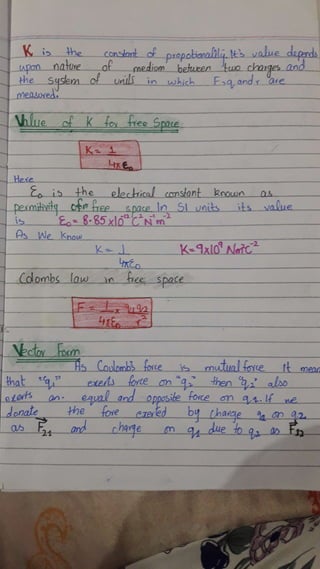 K is the constant of propotionality. It's value depends
upon nature of mediom between two charges and
the system of units in which F, q, and r are
measured.
Value of K for free Space
K = 1/4πε₀
Here
ε₀ is the electrical constant known as
permitivity of free space In SI units its value
is ε₀ = 8.85 x10⁻¹² C² N⁻¹ m⁻²
As We Know
K = 1/4πε₀ K=9x10⁹ Nm²C⁻²
Colombs law in free space
F = 1/4πε₀ x q₁q₂/r²
Vector Form
As Coulomb's force is mutual force It mean
that "q₁" exerts force on "q₂" then "q₂" also
exerts an equal and opposite force on q₁. If we
donate the fore exerted by charge q₁ on q₂
as F₂₁ and charge on q₁ due to q₂ as F₁₂